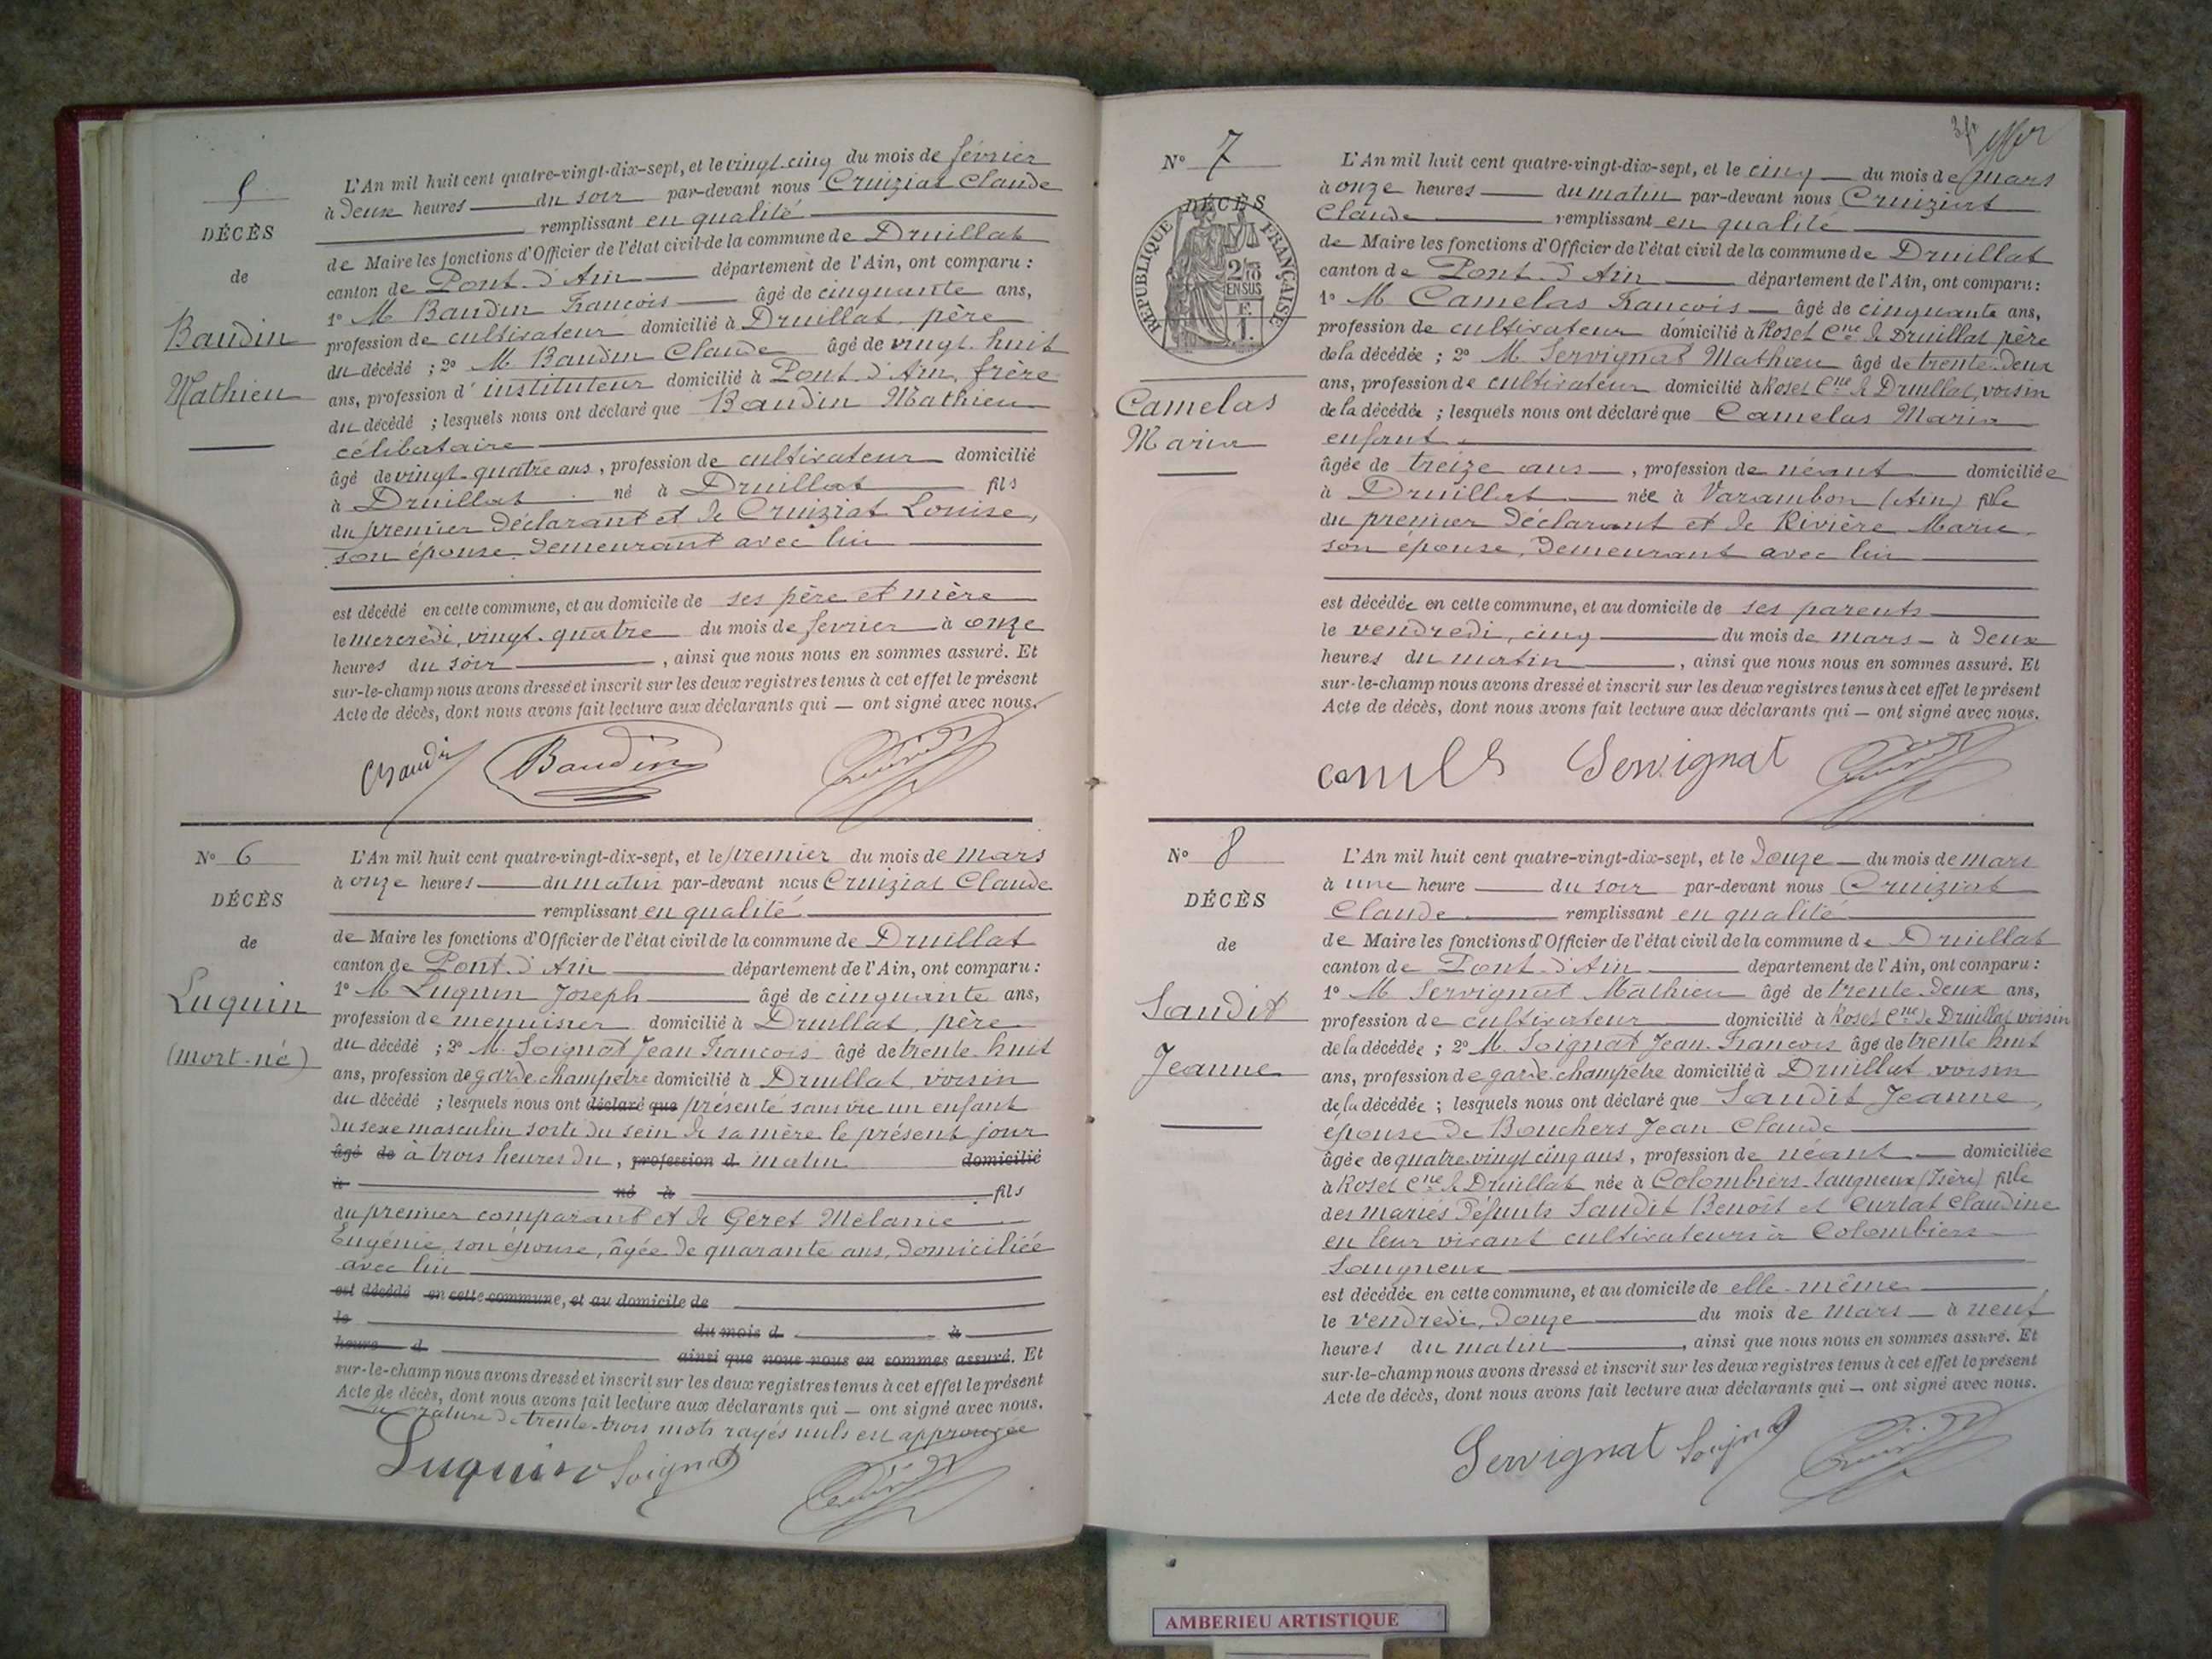 5
DÉCÈS
de
Baudin
Mathieu
L'An mil huit cent quatre-vingt-dix-sept, et le vingt-cinq du mois de février
à deux heures du soir par-devant nous Cruiziat Claude
remplissant en qualité
de Maire les fonctions d'Officier de l'état civil de la commune de Druillat
canton de Pont-d'Ain département de l'Ain, ont comparu :
1° M Baudin François âgé de cinquante ans,
profession de cultivateur domicilié à Druillat, père
du décédé ; 2° M Baudin Claude âgé de vingt-huit
ans, profession d'instituteur domicilié à Pont-d'Ain, frère
du décédé ; lesquels nous ont déclaré que Baudin Mathieu
célibataire
âgé de vingt-quatre ans, profession de cultivateur domicilié
à Druillat né à Druillat fils
du premier déclarant et de Cruiziat Louise,
son épouse demeurant avec lui
est décédé en cette commune, et au domicile de ses père et mère
le mercredi, vingt-quatre du mois de février à onze
heures du soir, ainsi que nous nous en sommes assuré. Et
sur-le-champ nous avons dressé et inscrit sur les deux registres tenus à cet effet le présent
Acte de décès, dont nous avons fait lecture aux déclarants qui — ont signé avec nous.
Baudin
N° 6
DÉCÈS
de
Luquin
(mort-né)
L'An mil huit cent quatre-vingt-dix-sept, et le premier du mois de mars
à onze heures du matin par-devant nous Cruiziat Claude
remplissant en qualité
de Maire les fonctions d'Officier de l'état civil de la commune de Druillat
canton de Pont-d'Ain département de l'Ain, ont comparu :
1° M Luquin Joseph âgé de cinquante ans,
profession de menuisier domicilié à Druillat, père
du décédé ; 2° M. Soignat Jean François âgé de trente-huit
ans, profession de garde champêtre domicilié à Druillat, voisin
du décédé ; lesquels nous ont déclaré que présenté sans vie un enfant
du sexe masculin sorti du sein de sa mère le présent jour
âgé de à trois heures du, profession d matin domicilié
à né à fils
du premier comparant et de Géret Mélanie
Eugénie, son épouse, âgée de quarante ans, domiciliée
avec lui
est décédé en cette commune, et au domicile de
le du mois d à
heure d ainsi que nous nous en sommes assuré. Et
sur-le-champ nous avons dressé et inscrit sur les deux registres tenus à cet effet le présent
Acte de décès, dont nous avons fait lecture aux déclarants qui — ont signé avec nous.
La rature de trente-trois mots rayés nuls est approuvée
Luquin Soignat
N° 7
DÉCÈS
RÉPUBLIQUE FRANÇAISE
2/10
EN SUS
F.
1.
Camelas
Maria
L'An mil huit cent quatre-vingt-dix-sept, et le cinq du mois de mars
à onze heures du matin par-devant nous Cruiziat
Claude remplissant en qualité
de Maire les fonctions d'Officier de l'état civil de la commune de Druillat
canton de Pont-d'Ain département de l'Ain, ont comparu :
1° M Camelas François âgé de cinquante ans,
profession de cultivateur domicilié à Roset Cne de Druillat père
de la décédée ; 2° M Servignat Mathieu âgé de trente-deux
ans, profession de cultivateur domicilié à Roset Cne de Druillat, voisin
de la décédée ; lesquels nous ont déclaré que Camelas Maria
enfant
âgée de treize ans, profession de néant domiciliée
à Druillat née à Varambon (Ain) fille
du premier déclarant et de Rivière Marie
son épouse, demeurant avec lui
est décédée en cette commune, et au domicile de ses parents
le vendredi, cinq du mois de mars à deux
heures du matin, ainsi que nous nous en sommes assuré. Et
sur-le-champ nous avons dressé et inscrit sur les deux registres tenus à cet effet le présent
Acte de décès, dont nous avons fait lecture aux déclarants qui — ont signé avec nous.
Servignat
N° 8
DÉCÈS
de
Sandit
Jeanne
L'An mil huit cent quatre-vingt-dix-sept, et le douze du mois de mars
à une heure du soir par-devant nous Cruiziat
Claude remplissant en qualité
de Maire les fonctions d'Officier de l'état civil de la commune de Druillat
canton de Pont-d'Ain département de l'Ain, ont comparu :
1° M Servignat Mathieu âgé de trente-deux ans,
profession de cultivateur domicilié à Roset Cne de Druillat voisin
de la décédée ; 2° M. Soignat Jean-François âgé de trente-huit
ans, profession de garde-champêtre domicilié à Druillat voisin
de la décédée ; lesquels nous ont déclaré que Sandit Jeanne,
épouse de Bouchers Jean-Claude
âgée de quatre-vingt-cinq ans, profession de néant domiciliée
à Roset Cne de Druillat née à Colombiers-Saugneux (Isère) fille
des mariés défunts Sandit Benoît et Curtat Claudine
en leur vivant cultivateurs à Colombiers
Saugneux
est décédée en cette commune, et au domicile de elle-même
le vendredi, douze du mois de mars à neuf
heures du matin, ainsi que nous nous en sommes assuré. Et
sur-le-champ nous avons dressé et inscrit sur les deux registres tenus à cet effet le présent
Acte de décès, dont nous avons fait lecture aux déclarants qui — ont signé avec nous.
Servignat Soignat
AMBERIEU ARTISTIQUE